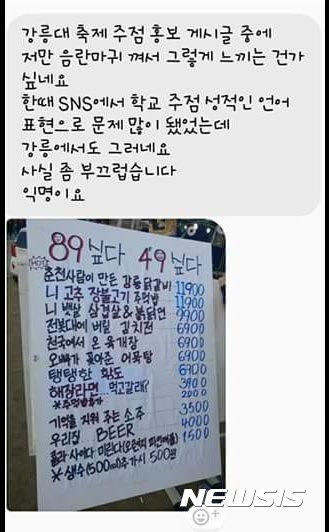 강릉대 축제 주점 홍보 게시글 중에
저만 음란마귀 껴서 그렇게 느끼는 건가
싶네요
한때 SNS에서 학교 주점 성적인 언어
표현으로 문제 많이 됐었는데
강릉에서도 그러네요
사실 좀 부끄럽습니다
익명이요
89 싶다 49 싶다
HOT
춘천사람이 만든 강릉닭갈비 11900
니 고추 장불고기 주먹밥 11900
니 뱃살 삼겹살&볶닭면 9900
전봇대에 버릴 김치전 6900
천국에서 온 육개장 6900
오빠가 꽂아준 어묵탕 6900
탱탱한 황도 6900
해장라면...먹고갈래? 3900
※주먹밥추가 2000
기억을 지워 주는 소주 3500
우리집 BEER 4000
콜라 사이다 미린다(오렌지 파인애플) 1500
※ 생수(500ml)추가시 500원
NEWSIS